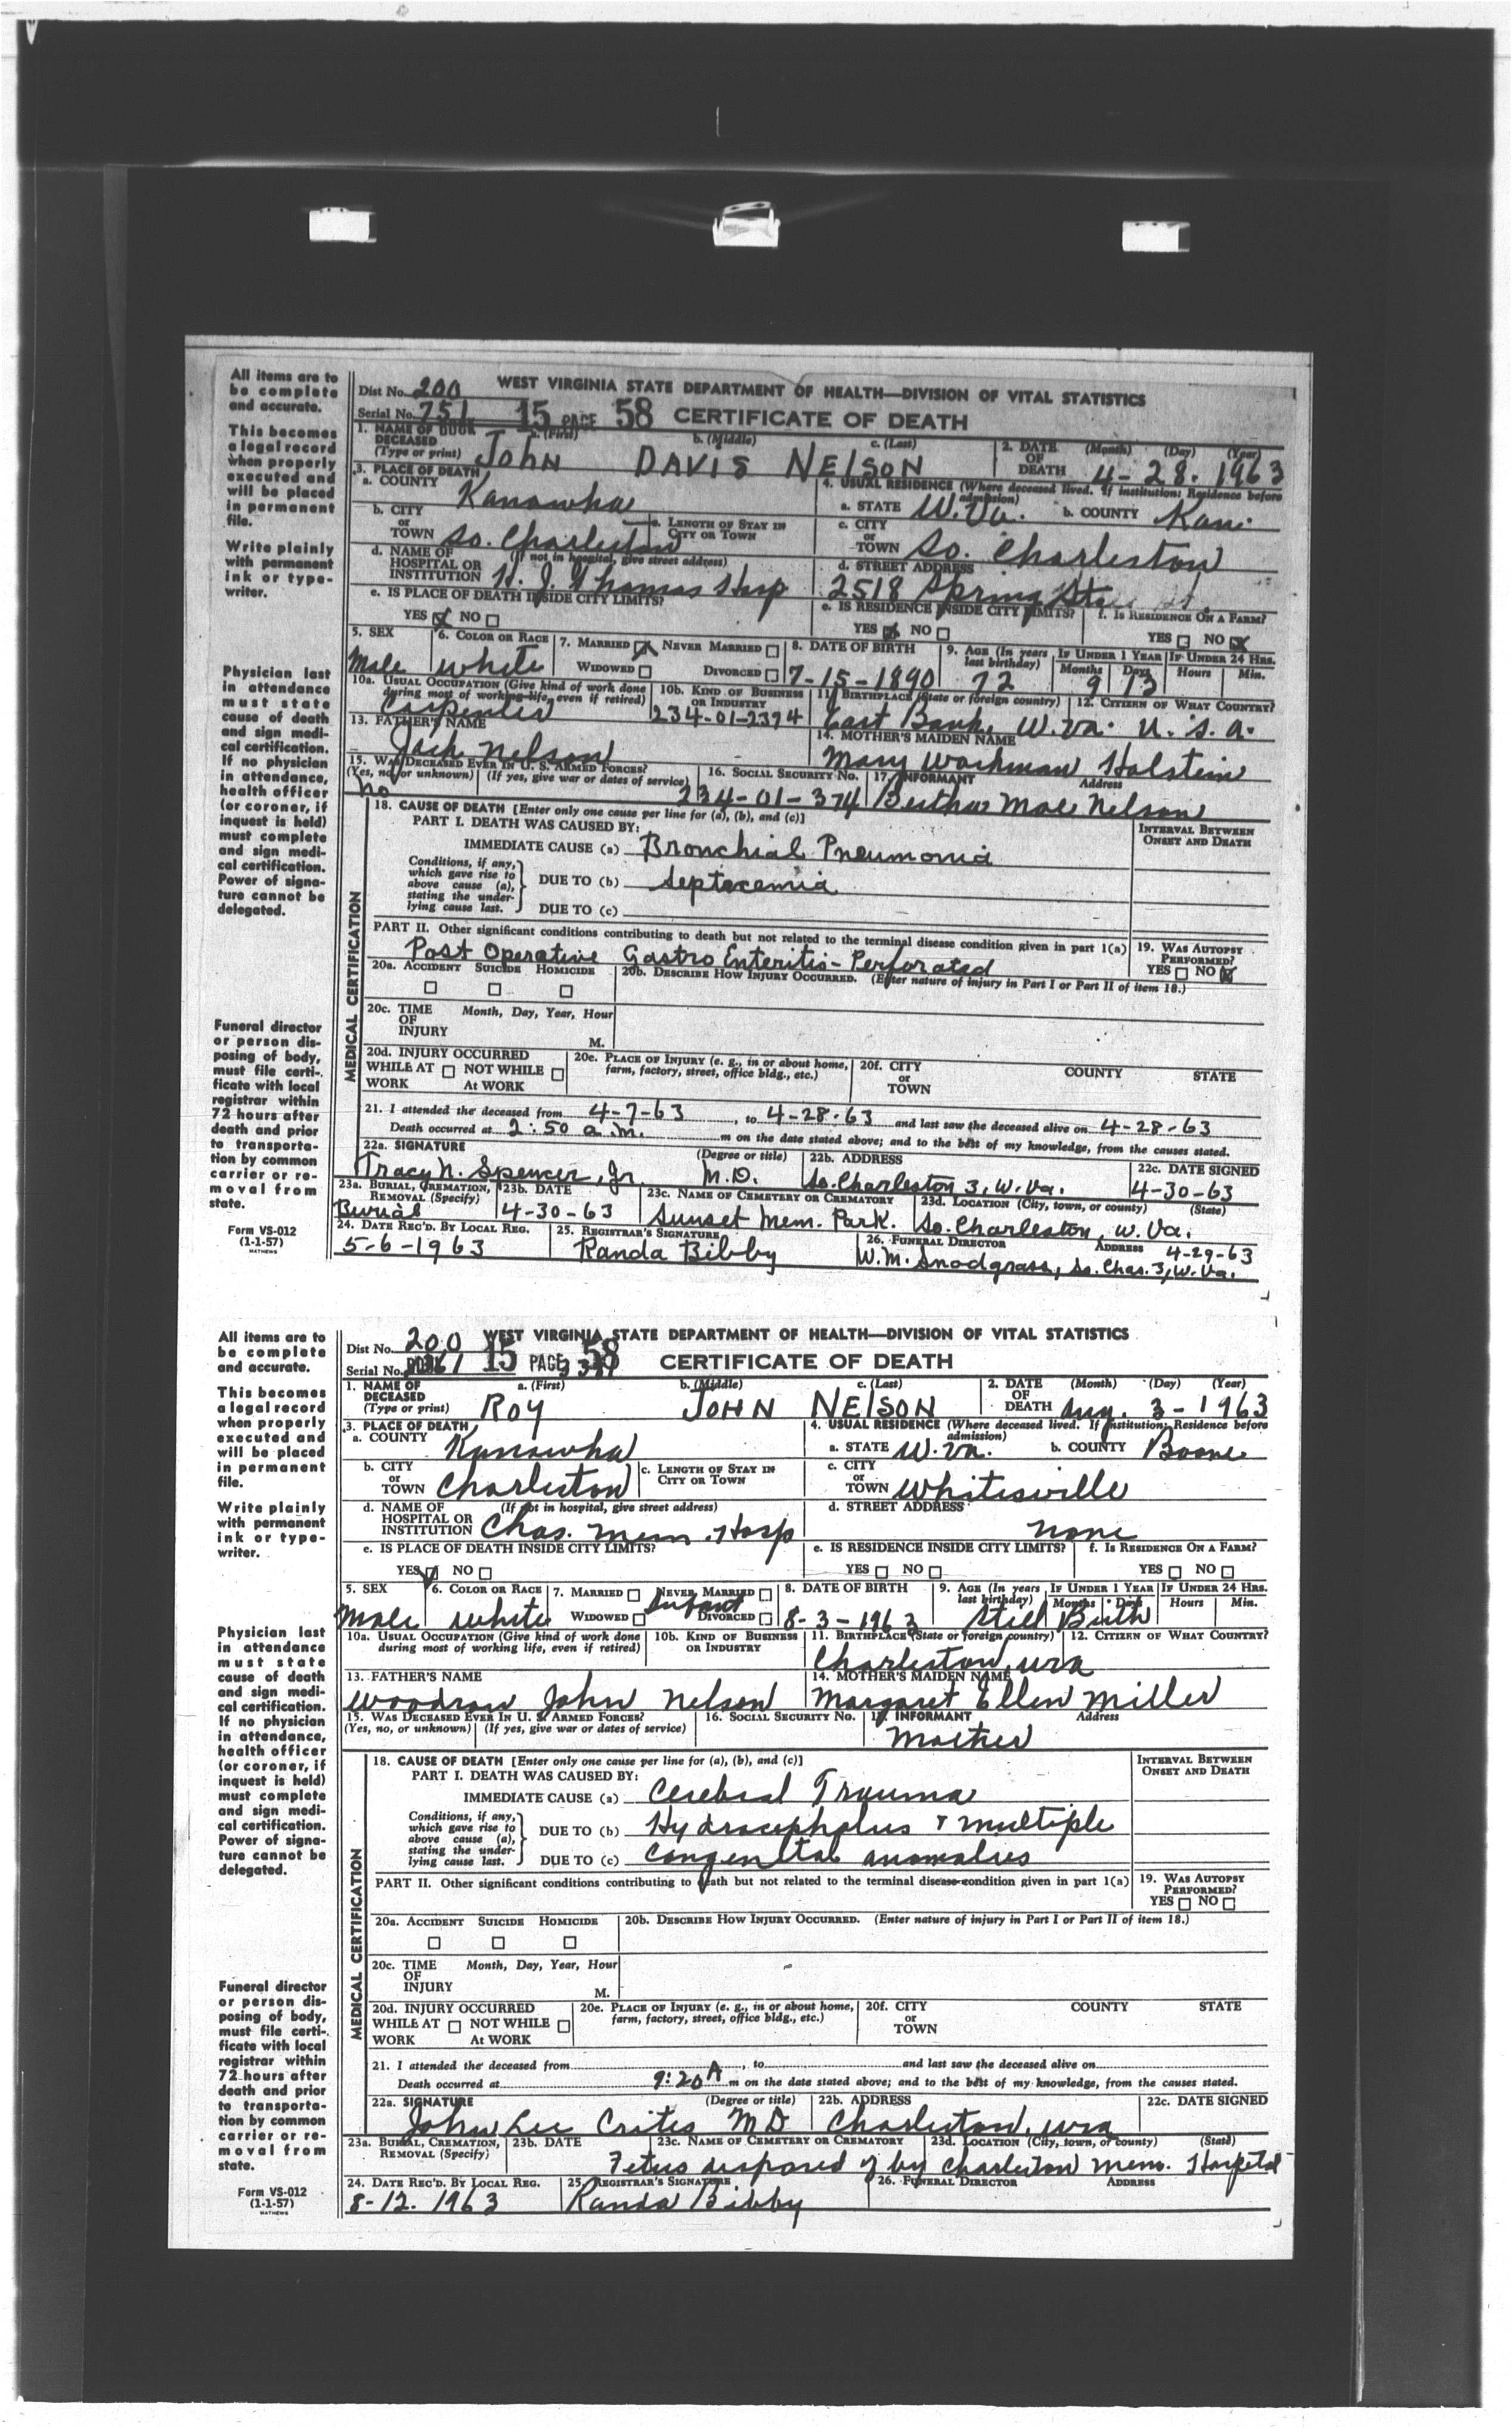 All items are to
be complete
and accurate.
This becomes
a legal record
when properly
executed and
will be placed
in permanent
file.
Write plainly
with permanent
ink or type-
writer.
Physician last
in attendance
must state
cause of death
and sign medi-
cal certification.
If no physician
in attendance,
health officer
(or coroner, if
inquest is held)
must complete
and sign medi-
cal certification.
Power of signa-
ture cannot be
delegated.
Funeral director
or person dis-
posing of body,
must file certi-
ficate with local
registrar within
72 hours after
death and prior
to transporta-
tion by common
carrier or re-
moval from
state.
Form VS-012
(1-1-57)
MATHEWS
Dist No. 200 WEST VIRGINIA STATE DEPARTMENT OF HEALTH—DIVISION OF VITAL STATISTICS
Serial No. 751 15 PAGE 58 CERTIFICATE OF DEATH
1. NAME OF DECEASED (Type or print) a. (First) b. (Middle) c. (Last) 2. DATE OF DEATH (Month) (Day) (Year)
JOHN DAVIS NELSON 4-28-1963
3. PLACE OF DEATH 4. USUAL RESIDENCE (Where deceased lived. If institution: Residence before admission)
a. COUNTY Kanawha a. STATE W. Va. b. COUNTY Kan.
b. CITY or TOWN So. Charleston c. LENGTH OF STAY IN CITY OR TOWN c. CITY or TOWN So. Charleston
d. NAME OF HOSPITAL OR INSTITUTION (If not in hospital, give street address) H. J. Thomas Hosp d. STREET ADDRESS 2518 Spring St.
e. IS PLACE OF DEATH INSIDE CITY LIMITS? e. IS RESIDENCE INSIDE CITY LIMITS? f. IS RESIDENCE ON A FARM?
YES NO YES NO YES NO
5. SEX 6. COLOR OR RACE 7. MARRIED NEVER MARRIED 8. DATE OF BIRTH 9. AGE (In years last birthday) IF UNDER 1 YEAR IF UNDER 24 HRS.
WIDOWED DIVORCED Months Days Hours Min.
Male White 7-15-1890 72 9 13
10a. USUAL OCCUPATION (Give kind of work done during most of working life, even if retired) 10b. KIND OF BUSINESS OR INDUSTRY 11. BIRTHPLACE (State or foreign country) 12. CITIZEN OF WHAT COUNTRY?
Carpenter 234-01-2374 East Bank, W. Va. U. S. A.
13. FATHER'S NAME 14. MOTHER'S MAIDEN NAME
Jack Nelson Mary Workman Holstein
15. WAS DECEASED EVER IN U. S. ARMED FORCES? 16. SOCIAL SECURITY No. 17. INFORMANT Address
(Yes, no, or unknown) (If yes, give war or dates of service)
no 234-01-374 Bertha Mae Nelson
18. CAUSE OF DEATH [Enter only one cause per line for (a), (b), and (c)] INTERVAL BETWEEN ONSET AND DEATH
PART I. DEATH WAS CAUSED BY:
IMMEDIATE CAUSE (a) Bronchial Pneumonia
Conditions, if any, which gave rise to above cause (a), stating the underlying cause last.
DUE TO (b) Septecemia
DUE TO (c)
MEDICAL CERTIFICATION
PART II. Other significant conditions contributing to death but not related to the terminal disease condition given in part 1(a) 19. WAS AUTOPSY PERFORMED?
Post Operative Gastro Enteritis - Perforated YES NO
20a. ACCIDENT SUICIDE HOMICIDE 20b. DESCRIBE HOW INJURY OCCURRED. (Enter nature of injury in Part I or Part II of item 18.)
20c. TIME OF INJURY Month, Day, Year, Hour M.
20d. INJURY OCCURRED 20e. PLACE OF INJURY (e. g., in or about home, farm, factory, street, office bldg., etc.) 20f. CITY or TOWN COUNTY STATE
WHILE AT WORK NOT WHILE At WORK
21. I attended the deceased from 4-7-63, to 4-28-63 and last saw the deceased alive on 4-28-63
Death occurred at 2:50 a.m. m on the date stated above; and to the best of my knowledge, from the causes stated.
22a. SIGNATURE (Degree or title) 22b. ADDRESS 22c. DATE SIGNED
Tracy N. Spencer, Jr. M.D. So. Charleston 3, W. Va. 4-30-63
23a. BURIAL, CREMATION, REMOVAL (Specify) 23b. DATE 23c. NAME OF CEMETERY OR CREMATORY 23d. LOCATION (City, town, or county) (State)
Burial 4-30-63 Sunset Mem. Park. So. Charleston, W. Va.
24. DATE REC'D. BY LOCAL REG. 25. REGISTRAR'S SIGNATURE 26. FUNERAL DIRECTOR ADDRESS 4-29-63
5-6-1963 Randa Bibby W. M. Snodgrass, So. Chas. 3, W. Va.
All items are to
be complete
and accurate.
This becomes
a legal record
when properly
executed and
will be placed
in permanent
file.
Write plainly
with permanent
ink or type-
writer.
Physician last
in attendance
must state
cause of death
and sign medi-
cal certification.
If no physician
in attendance,
health officer
(or coroner, if
inquest is held)
must complete
and sign medi-
cal certification.
Power of signa-
ture cannot be
delegated.
Funeral director
or person dis-
posing of body,
must file certi-
ficate with local
registrar within
72 hours after
death and prior
to transporta-
tion by common
carrier or re-
moval from
state.
Form VS-012
(1-1-57)
MATHEWS
Dist No. 200 WEST VIRGINIA STATE DEPARTMENT OF HEALTH—DIVISION OF VITAL STATISTICS
Serial No. 15 PAGE 58 CERTIFICATE OF DEATH
1. NAME OF DECEASED (Type or print) a. (First) b. (Middle) c. (Last) 2. DATE OF DEATH (Month) (Day) (Year)
ROY JOHN NELSON Aug. 3-1963
3. PLACE OF DEATH 4. USUAL RESIDENCE (Where deceased lived. If institution: Residence before admission)
a. COUNTY Kanawha a. STATE W. Va. b. COUNTY Boone
b. CITY or TOWN Charleston c. LENGTH OF STAY IN CITY OR TOWN c. CITY or TOWN Whitesville
d. NAME OF HOSPITAL OR INSTITUTION (If not in hospital, give street address) Chas. Mem. Hosp d. STREET ADDRESS none
e. IS PLACE OF DEATH INSIDE CITY LIMITS? e. IS RESIDENCE INSIDE CITY LIMITS? f. IS RESIDENCE ON A FARM?
YES NO YES NO YES NO
5. SEX 6. COLOR OR RACE 7. MARRIED NEVER MARRIED 8. DATE OF BIRTH 9. AGE (In years last birthday) IF UNDER 1 YEAR IF UNDER 24 HRS.
WIDOWED DIVORCED Months Days Hours Min.
Male White Infant 8-3-1963 Still Birth
10a. USUAL OCCUPATION (Give kind of work done during most of working life, even if retired) 10b. KIND OF BUSINESS OR INDUSTRY 11. BIRTHPLACE (State or foreign country) 12. CITIZEN OF WHAT COUNTRY?
Charleston, Wva
13. FATHER'S NAME 14. MOTHER'S MAIDEN NAME
Woodrow John Nelson Margaret Ellen Miller
15. WAS DECEASED EVER IN U. S. ARMED FORCES? 16. SOCIAL SECURITY No. 17. INFORMANT Address
(Yes, no, or unknown) (If yes, give war or dates of service)
Mother
18. CAUSE OF DEATH [Enter only one cause per line for (a), (b), and (c)] INTERVAL BETWEEN ONSET AND DEATH
PART I. DEATH WAS CAUSED BY:
IMMEDIATE CAUSE (a) Cerebral Trauma
Conditions, if any, which gave rise to above cause (a), stating the underlying cause last.
DUE TO (b) Hydrocephalus & multiple
DUE TO (c) congenital anomalies
MEDICAL CERTIFICATION
PART II. Other significant conditions contributing to death but not related to the terminal disease condition given in part 1(a) 19. WAS AUTOPSY PERFORMED?
YES NO
20a. ACCIDENT SUICIDE HOMICIDE 20b. DESCRIBE HOW INJURY OCCURRED. (Enter nature of injury in Part I or Part II of item 18.)
20c. TIME OF INJURY Month, Day, Year, Hour M.
20d. INJURY OCCURRED 20e. PLACE OF INJURY (e. g., in or about home, farm, factory, street, office bldg., etc.) 20f. CITY or TOWN COUNTY STATE
WHILE AT WORK NOT WHILE At WORK
21. I attended the deceased from , to and last saw the deceased alive on
Death occurred at 9:20 A m on the date stated above; and to the best of my knowledge, from the causes stated.
22a. SIGNATURE (Degree or title) 22b. ADDRESS 22c. DATE SIGNED
John Lee Crites MD Charleston, Wva
23a. BURIAL, CREMATION, REMOVAL (Specify) 23b. DATE 23c. NAME OF CEMETERY OR CREMATORY 23d. LOCATION (City, town, or county) (State)
Fetus disposed of by Charleston Mem. Hospital
24. DATE REC'D. BY LOCAL REG. 25. REGISTRAR'S SIGNATURE 26. FUNERAL DIRECTOR ADDRESS
8-12-1963 Randa Bibby